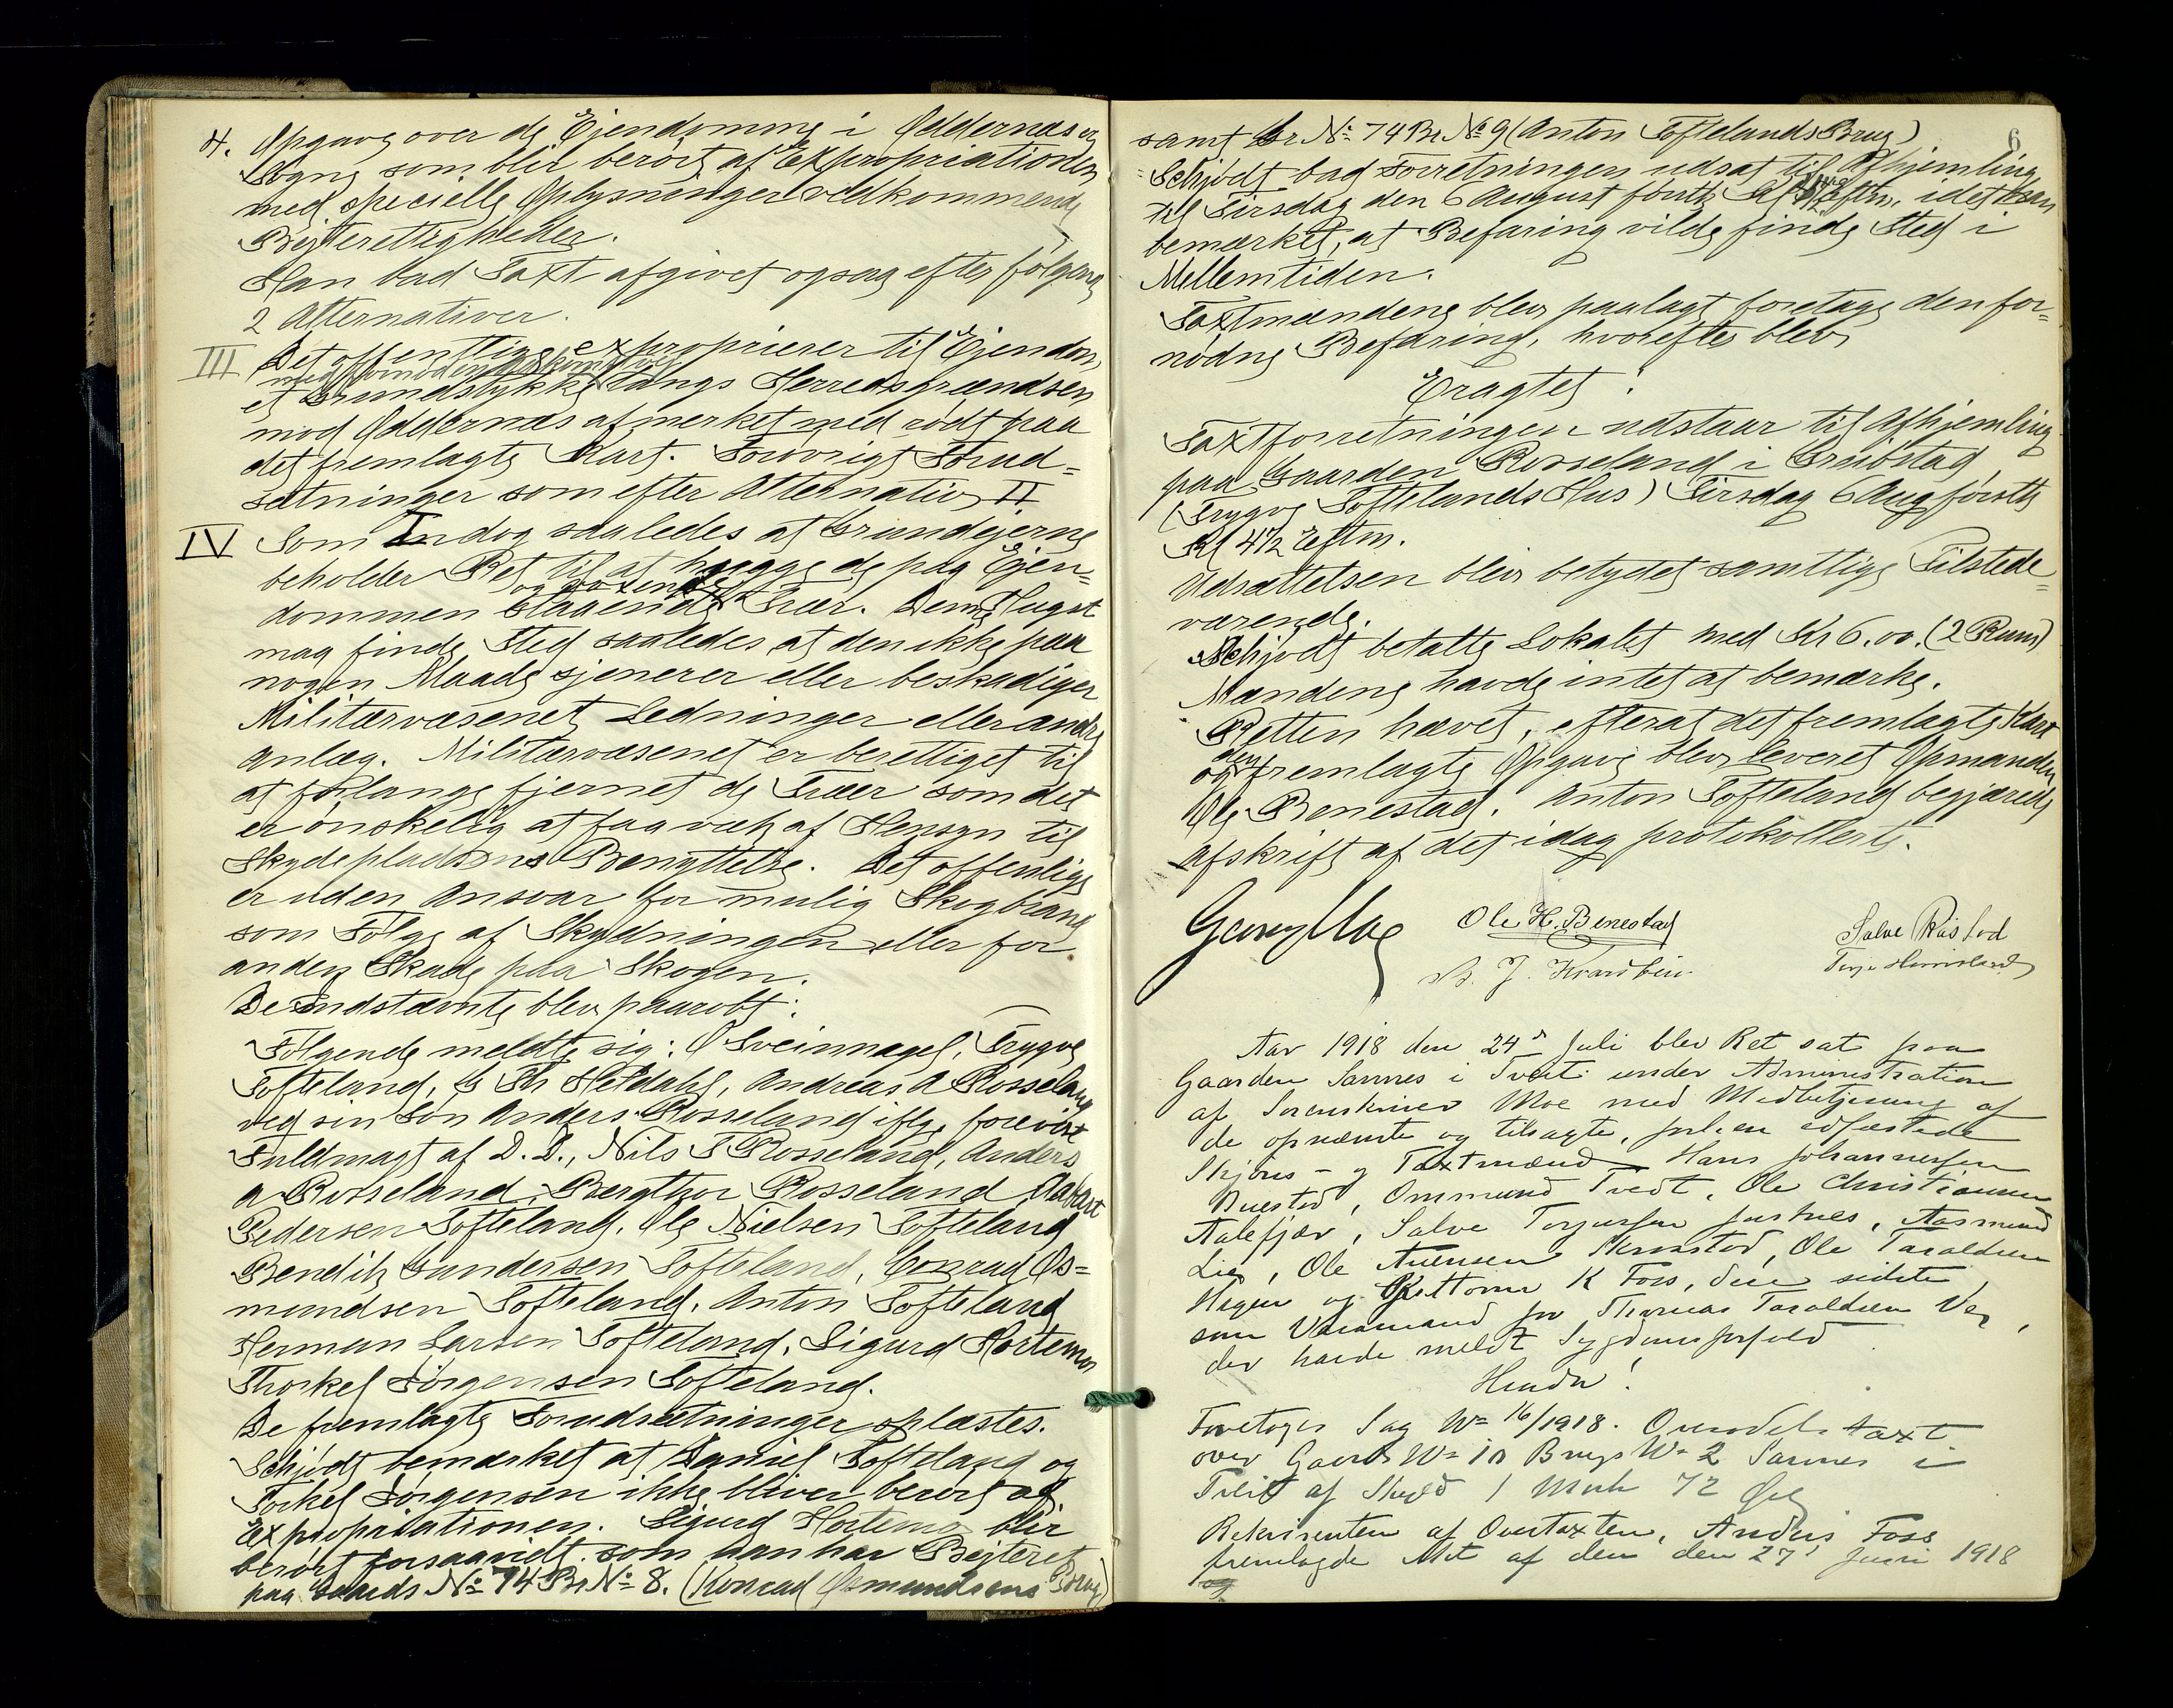 4. Opgave over de Ejendomme i Oddernæs
Sogn som blir berørt af Expropriationen
med specielle Oplysninger vedkommende
Bejterettigheder.
Han bad Taxt afgivet ogsaa efter følgende
2 Alternativer.
III Det offentlige exproprierer til Ejendom
et Grundstykke langs Herredsgrændsen
mod Oddernæs afmerket med rødt paa
det fremlagte Kart. Forøvrigt Forud=
sætninger som efter Alternativ II.
IV Som I dog saaledes at Grundejerne
beholder Ret til at hugge de paa Ejen=
og voxende
dommen staaende Trær. Denne Hugst
maa finde Sted saaledes at den ikke paa
nogen Maade sjenerer eller beskadiger
Militærvæsenets Ledninger eller andre
Anlæg. Militærvæsenet er berettiget til
at forlange fjernet de Trær som det
er ønskelig at faa væk af Hensyn til
Skydepladsens Benyttelse. Det offentlige
er uden Ansvar for mulig Skogbrand
som Følge af Skydningen eller for
anden Skade paa Skogen.
De Indstævnte blev paaraabt:
Følgende meldte sig: O Sveinnagel, Trygve
Tofteland, Andreas A Rosseland
ved sin Søn Anders Rosseland iflg. forevist
Fuldmagt af D.D., Nils T Rosseland, Anders
A Rosseland, Bergthor Rosseland
Pedersen Tofteland, Ole Nielsen Tofteland
Bendik Gundersen Tofteland, Conrad Os=
mundsen Tofteland, Anton Tofteland
Herman Larsen Tofteland, Sigurd Hortemo
Thorkel Jørgensen Tofteland.
De fremlagte Forudsætninger oplæstes.
Schjødt bemærket at Daniel Tofteland og
Torkel Jørgensen ikke bliver berørt af
Expropriationen. Sigurd Hortemo blir
berørt forsaavidt som han har Bejteret
paa Gaards No 74 Br No 8. (Konrad Osmundsens Brug)
6
samt Gr No 74 Br No 9 (Anton Toftelands Brug)
Schjødt bad Forretningen udsat til Afhjemling
til Tirsdag den 6 August førstk Kl 4½ Eftm. idet han
bemærket, at Befaring vilde finde Sted i
Mellemtiden.
Taxtmændene blev paalagt foretage den for=
nødne Befaring, hvorefter blev
Eragtet:
Taxtforretningen udstaar til Afhjemling
paa Gaarden Rosseland i Greibstad,
(Trygve Toftelands Hus) Tirsdag 6 Aug førstk
Kl 4½ Eftm.
Udsættelsen blev betydet samtlige Tilstede=
værende.
Schjødt betalte Lokalet med Kr 6.00. (2 Rum)
Mændene havde intet at bemærke.
Retten hævet, efterat det fremlagte Kart
og den fremlagte Opgave blev leveret Opmanden
Ole Benestad. Anton Tofteland begjærede
Afskrift af det idag protokollerte.
Ole H. Benestad
Salve
Aar 1918 den 24de Juli blev Ret sat paa
Gaarden Sannes i Tveit under Administration
af Sorenskriver Moe med Medbetjening af
de opnævnte og tilsagte, forhen edfæstede
Skjøns- og Taxtmænd Hans Johannessen
Buestad, Ommund Tvedt, Ole Christiansen
Aalefjær, Salve Torjussen Justnes, Aasmund
Lie, Ole Auensen Ole Taraldsen
Hagen og K Foss, den sidste
som Varamand for Thomas Taraldsen
der havde meldt Sygdomsforfald
Hvorda!
Foretoges Sag No 16/1918. Overodelstaxt
over Gaards No 10 Brugs No 2 Sannes i
Tveit af Skyld 1 Mark 72 Øre
Rekvirenten af Overtaxten, Anders Foss
fremlagde Akt af den den 27de Juni 1918